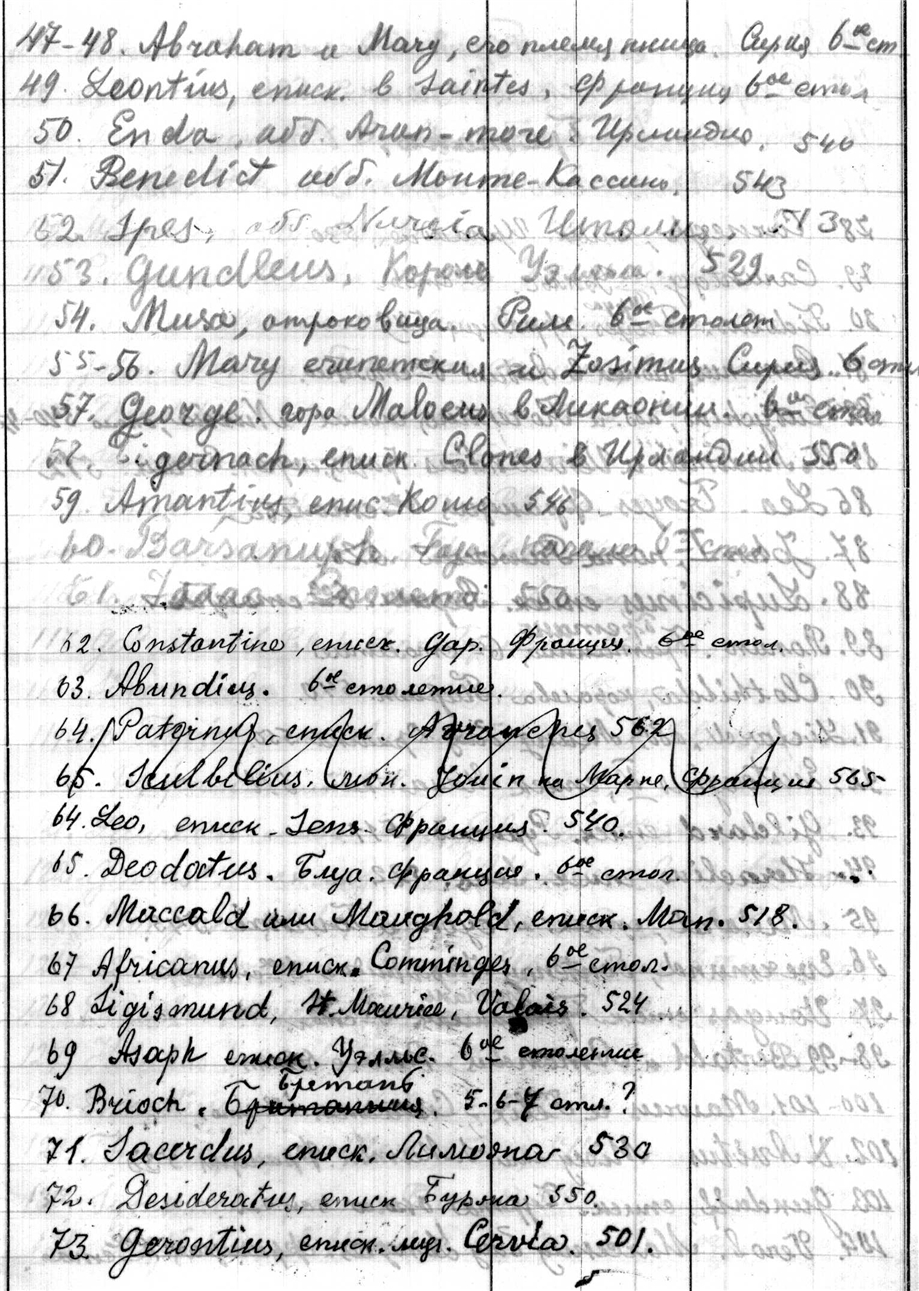 47-48. Abraham и Mary, его племянница. Сирия 6ое ст
49. Leontius, еписк. в Saintes, Франция 6ое стол
50. Enda, абб. Aran-more. Ирландия. 540
51. Benedict абб. Монте-Кассино. 543
52. Spes, абб. Nurcia Италия 513
53. Gundleus, Король Уэльса. 529
54. Musa, отроковица. Рим. 6ое столет
55-56. Mary египетская и Zosimus Сирия. 6 ст
57. George. гора Maloeus в Ликаонии. 6ое стол
58. Tigernach, еписк. Clones в Ирландии 550
59. Amantius, епис. Комо 546
60. Barsanuph. 6
61. 550
62. Constantine, еписк. Gap. Франция. 6ое стол.
63. Abundius. 6ое столетие.
64. Paternus, еписк. 562
65. мон. Jouin на Марне, Франция 565
64. Leo, еписк. Sens. Франция. 540.
65. Deodatus. Блуа. Франция. 6ое стол.
66. Maccald или Maughold, еписк. Man. 518.
67 Africanus, еписк. Comminges, 6ое стол.
68 Sigismund, St. Maurice, Valais. 524
69 Asaph еписк. Уэлльс. 6ое столетие
Бретань
70. Brioch. Британния. 5-6-7 стл.?
71. Sacerdus, еписк. Лиможа 530
72. Desideratus, еписк Буржа 550.
73. Gerontius, еписк. муч. Cervia. 501.